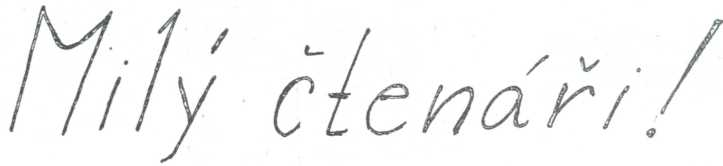 Milý čtenáři!